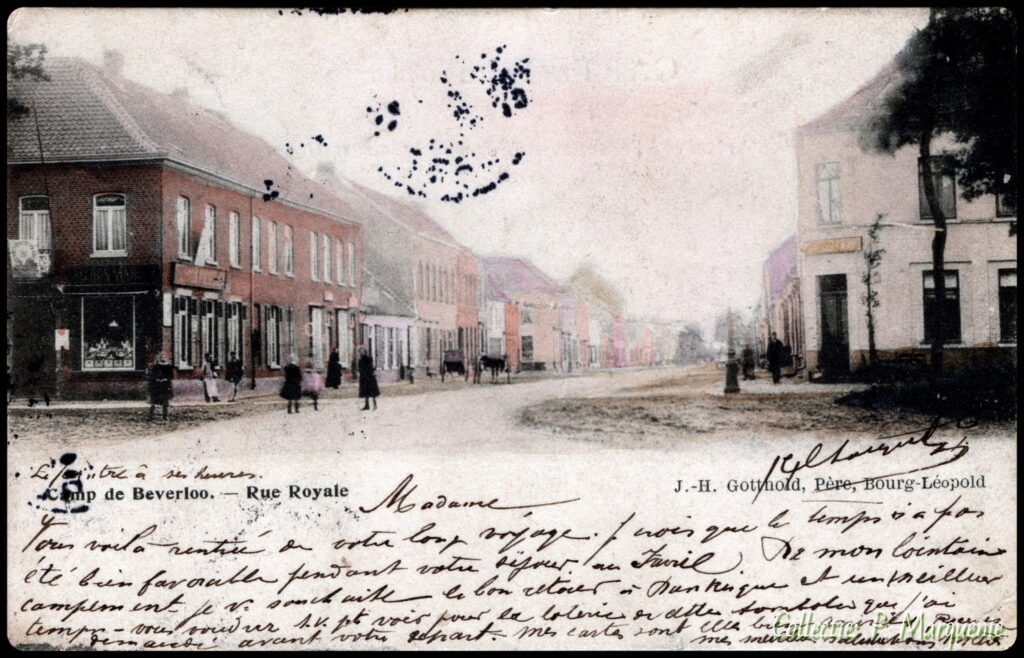 Le peintre à ses heures.
Camp de Beverloo. — Rue Royale
J.-H. Gotthold, Père, Bourg-Léopold
Madame
Vous voilà rentrée de votre long voyage. Je crois que le temps n'a pas
été bien favorable pendant votre séjour au De mon lointain
campement je vs souhaite le bon retour à Dunkerque et un meilleur
temps - vous voudrez pts voir pour la loterie de que j'ai
demandé avant votre départ - mes cartes sont elles bien
mes meilleures salutations
Collectie P. Marquenie